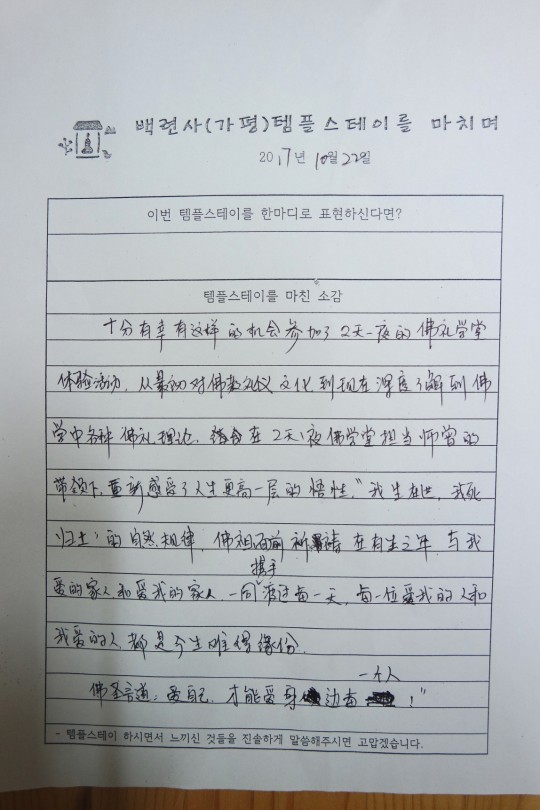 백련사(가평)템플스테이를 마치며
2017년 10월 22일
이번 템플스테이를 한마디로 표현하신다면?
템플스테이를 마친 소감
十分有幸有这样的机会参加了2天一夜的佛礼学堂
体验活动,从最初对佛教礼仪文化到现在深度了解到佛
学中各种佛礼理论.结合在2天1夜佛学堂担当师曾的
带领下,重新感受了人生更高一层的悟性."我生在世,我死
归土"的自然规律,佛祖面前祈祷在有生之年,与我
携手
爱的家人和爱我的家人一同渡过每一天,每一位爱我的人和
我爱的人都是今生难得缘份.
一个人
佛圣言道:爱自己,才能爱身边每!"
- 템플스테이 하시면서 느끼신 것들을 진솔하게 말씀해주시면 고맙겠습니다.